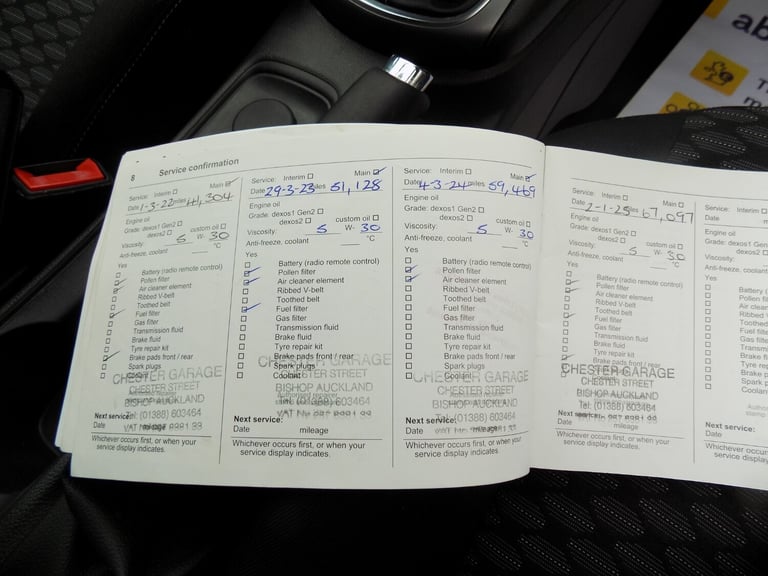 8 Service confirmation
Service: Interim Main
Date 1-3-22 miles 41,304
Engine oil
Grade: dexos1 Gen2
dexos2 custom oil
Viscosity: 5 W- 30
Anti-freeze, coolant °C
Yes
Battery (radio remote control)
Pollen filter
Air cleaner element
Ribbed V-belt
Toothed belt
Fuel filter
Gas filter
Transmission fluid
Brake fluid
Tyre repair kit
Brake pads front / rear
Spark plugs
Coolant
CHESTER GARAGE
CHESTER STREET
BISHOP AUCKLAND
Tel: (01388) 603464
VAT
Next service:
Date mileage
Whichever occurs first, or when your
service display indicates.
Service: Interim Main
Date 29-3-23 miles 51,128
Engine oil
Grade: dexos1 Gen2
dexos2 custom oil
Viscosity: 5 W- 30
Anti-freeze, coolant °C
Yes
Battery (radio remote control)
Pollen filter
Air cleaner element
Ribbed V-belt
Toothed belt
Fuel filter
Gas filter
Transmission fluid
Brake fluid
Tyre repair kit
Brake pads front / rear
Spark plugs
Coolant
CHESTER GARAGE
CHESTER STREET
BISHOP AUCKLAND
Tel: (01388) 603464
VAT No
Next service:
Date mileage
Whichever occurs first, or when your
service display indicates.
Service: Interim Main
Date 4-3-24 miles 59,469
Engine oil
Grade: dexos1 Gen2
dexos2 custom oil
Viscosity: 5 W- 30
Anti-freeze, coolant °C
Yes
Battery (radio remote control)
Pollen filter
Air cleaner element
Ribbed V-belt
Toothed belt
Fuel filter
Gas filter
Transmission fluid
Brake fluid
Tyre repair kit
Brake pads front / rear
Spark plugs
Coolant
CHESTER GARAGE
CHESTER STREET
BISHOP AUCKLAND
Tel: (01388) 603464
VAT
Next service:
Date mileage
Whichever occurs first, or when your
service display indicates.
Service: Interim Main
Date 2-1-25 miles 67,097
Engine oil
Grade: dexos1 Gen2
dexos2 custom oil
Viscosity: 5 W- 30
Anti-freeze, coolant °C
Yes
Battery (radio remote control)
Pollen filter
Air cleaner element
Ribbed V-belt
Toothed belt
Fuel filter
Gas filter
Transmission fluid
Brake fluid
Tyre repair kit
Brake pads front / rear
Spark plugs
Coolant
CHESTER GARAGE
CHESTER STREET
BISHOP AUCKLAND
Tel: (01388) 603464
VAT
Next service:
Date mileage
Whichever occurs first, or when your
service display indicates.
Service: Interim
Date
Engine oil
Grade: dexos1 Gen2
dexos2
Viscosity:
Anti-freeze, coolant
Yes
Battery
Pollen
Air clea
Ribbed
Toothed
Fuel filte
Gas filte
Transm
Brake fl
Tyre re
Brake p
Spark p
Coolan
Next service:
Date
Whichever occurs first,
service display
ab